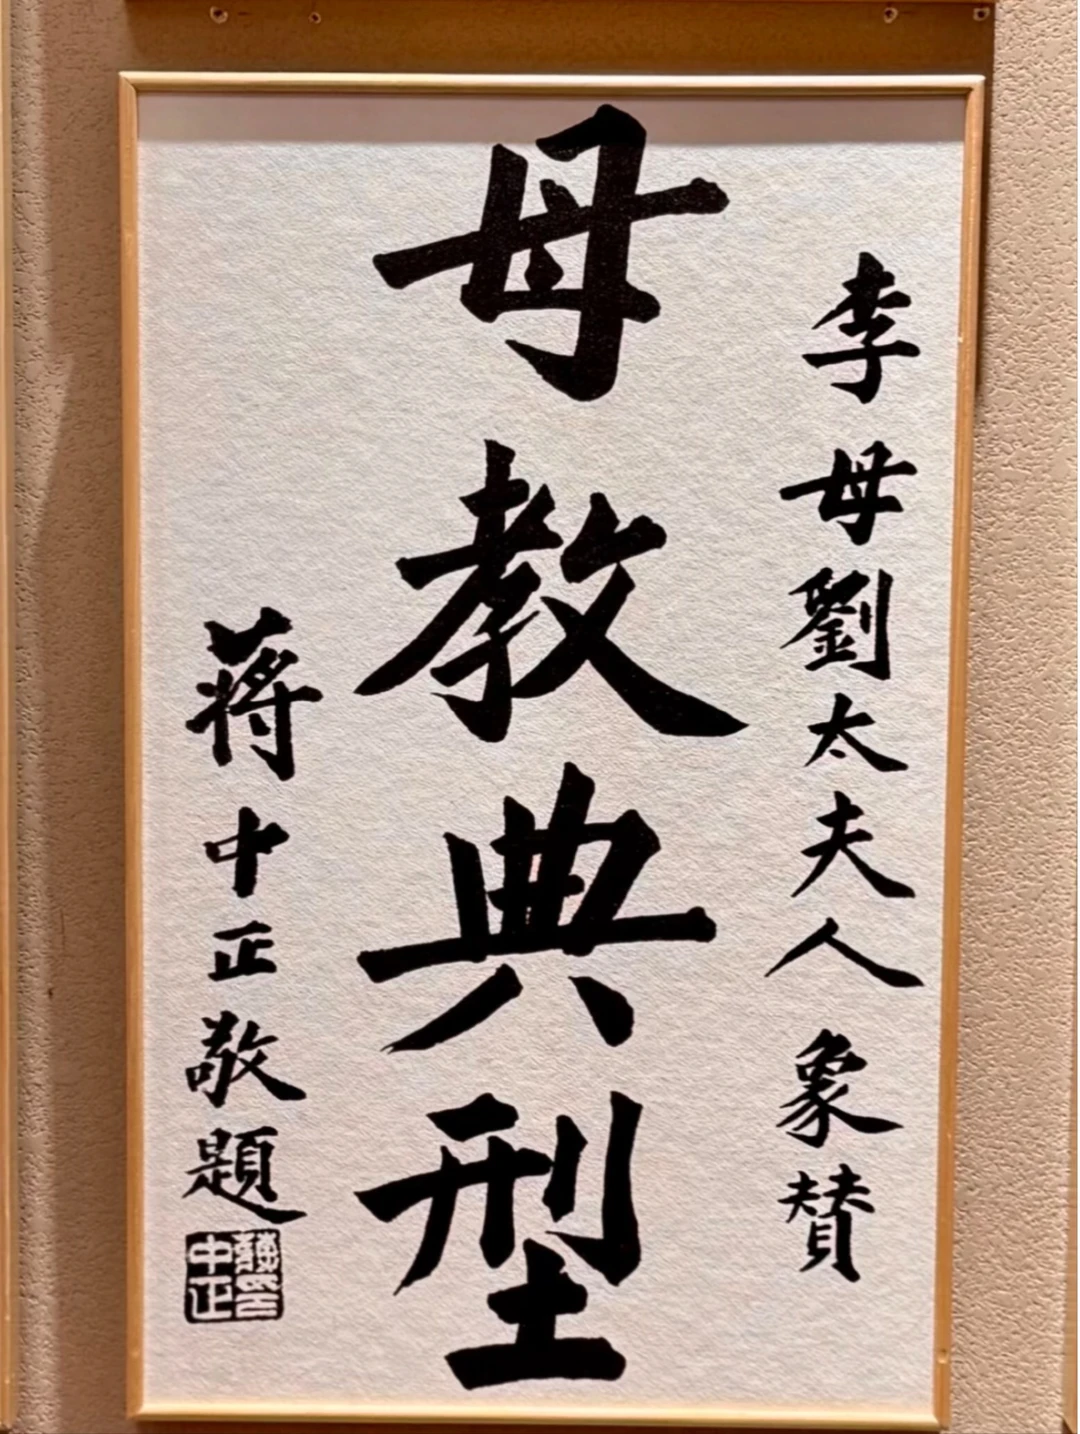 李母劉太夫人象贊
母教典型
蔣中正敬題
蔣印
中正